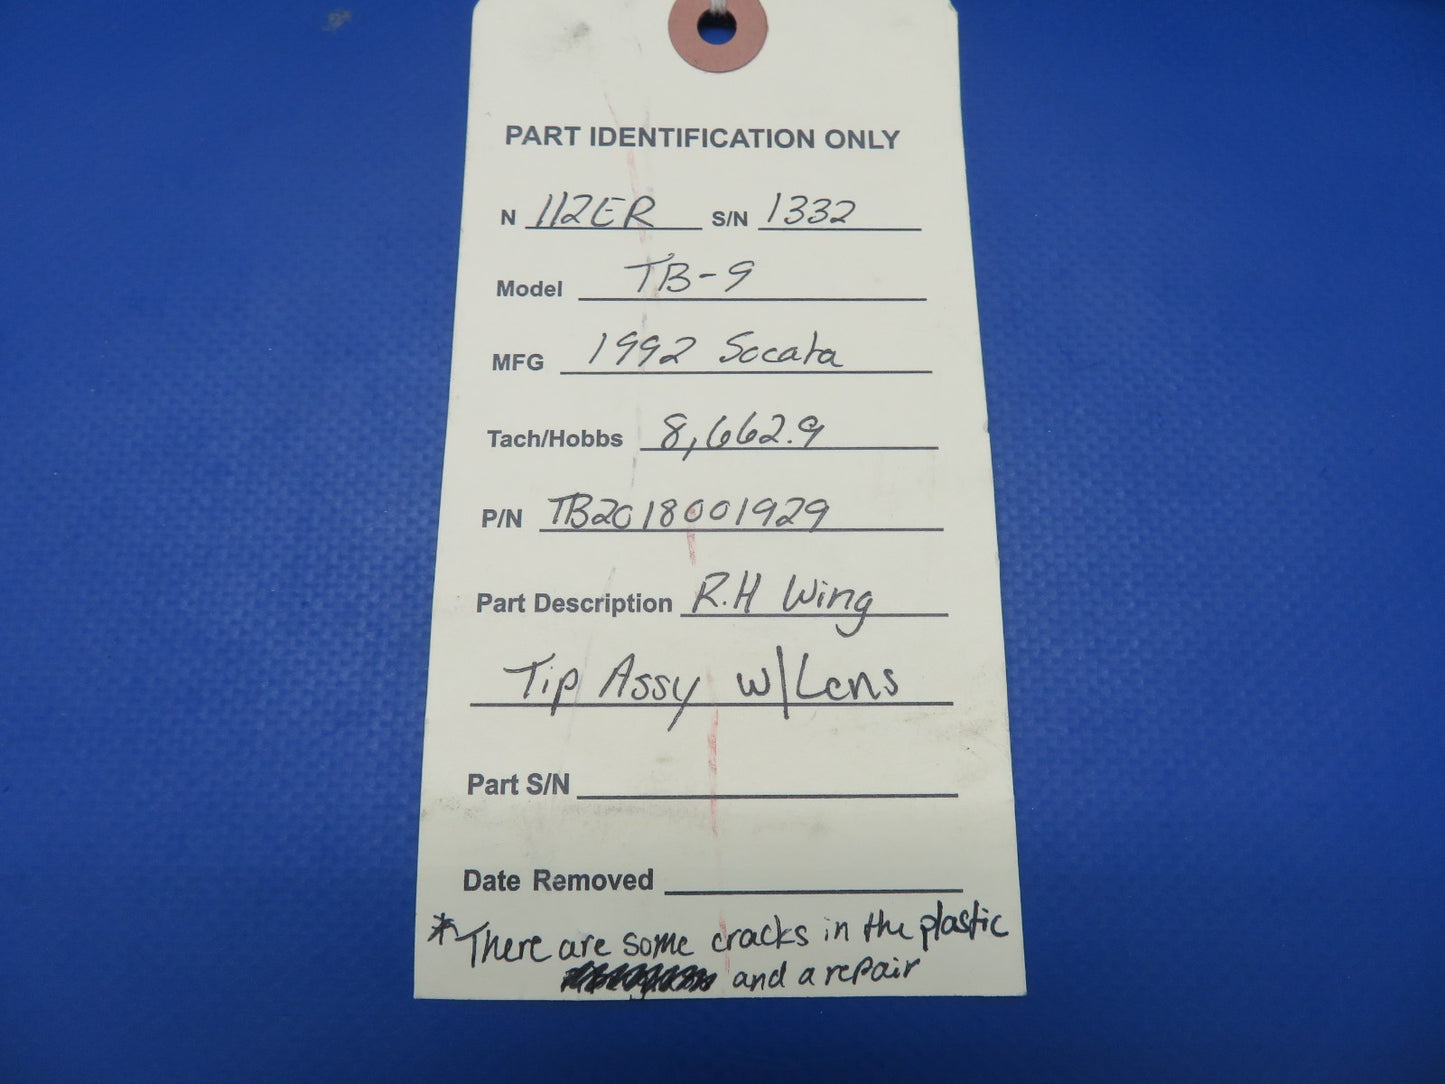 PART IDENTIFICATION ONLY
N 112ER S/N 1332
Model TB-9
MFG 1992 Socata
Tach/Hobbs 8,662.9
P/N TB2018001929
Part Description R.H Wing
Tip Assy w/Lens
Part S/N
Date Removed
*There are some cracks in the plastic
and a repair